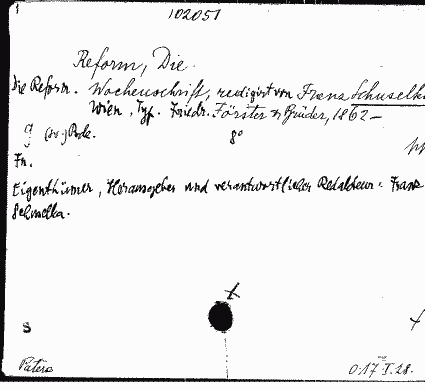 102051
Reform, Die.
Die Reform. Wochenschrift, redigirt von Franz Schuselka
Wien, Typ. Friedr. Förster & Brüder, 1862–
9 Bde. 8°
Fn.
Eigenthümer, Herausgeber und verantwortlicher Redakteur: Franz
Schuselka.
S
Patera 0.17 I.28.